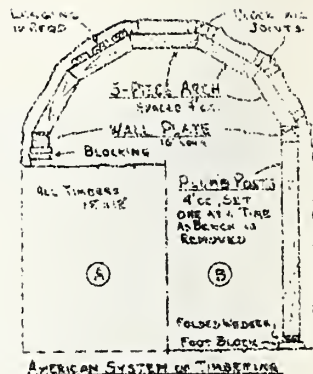 LAGGING
IF REQD
BLOCK ALL
JOINTS
5-PIECE ARCH
SPACED 4' CC.
WALL PLATE
BLOCKING
ALL TIMBERS
PLUMB POSTS
4' CC, SET
ONE AT A TIME
AS BENCH IS
REMOVED
A
B
FOLDED WEDGES
FOOT BLOCK
AMERICAN SYSTEM OF TIMBERING